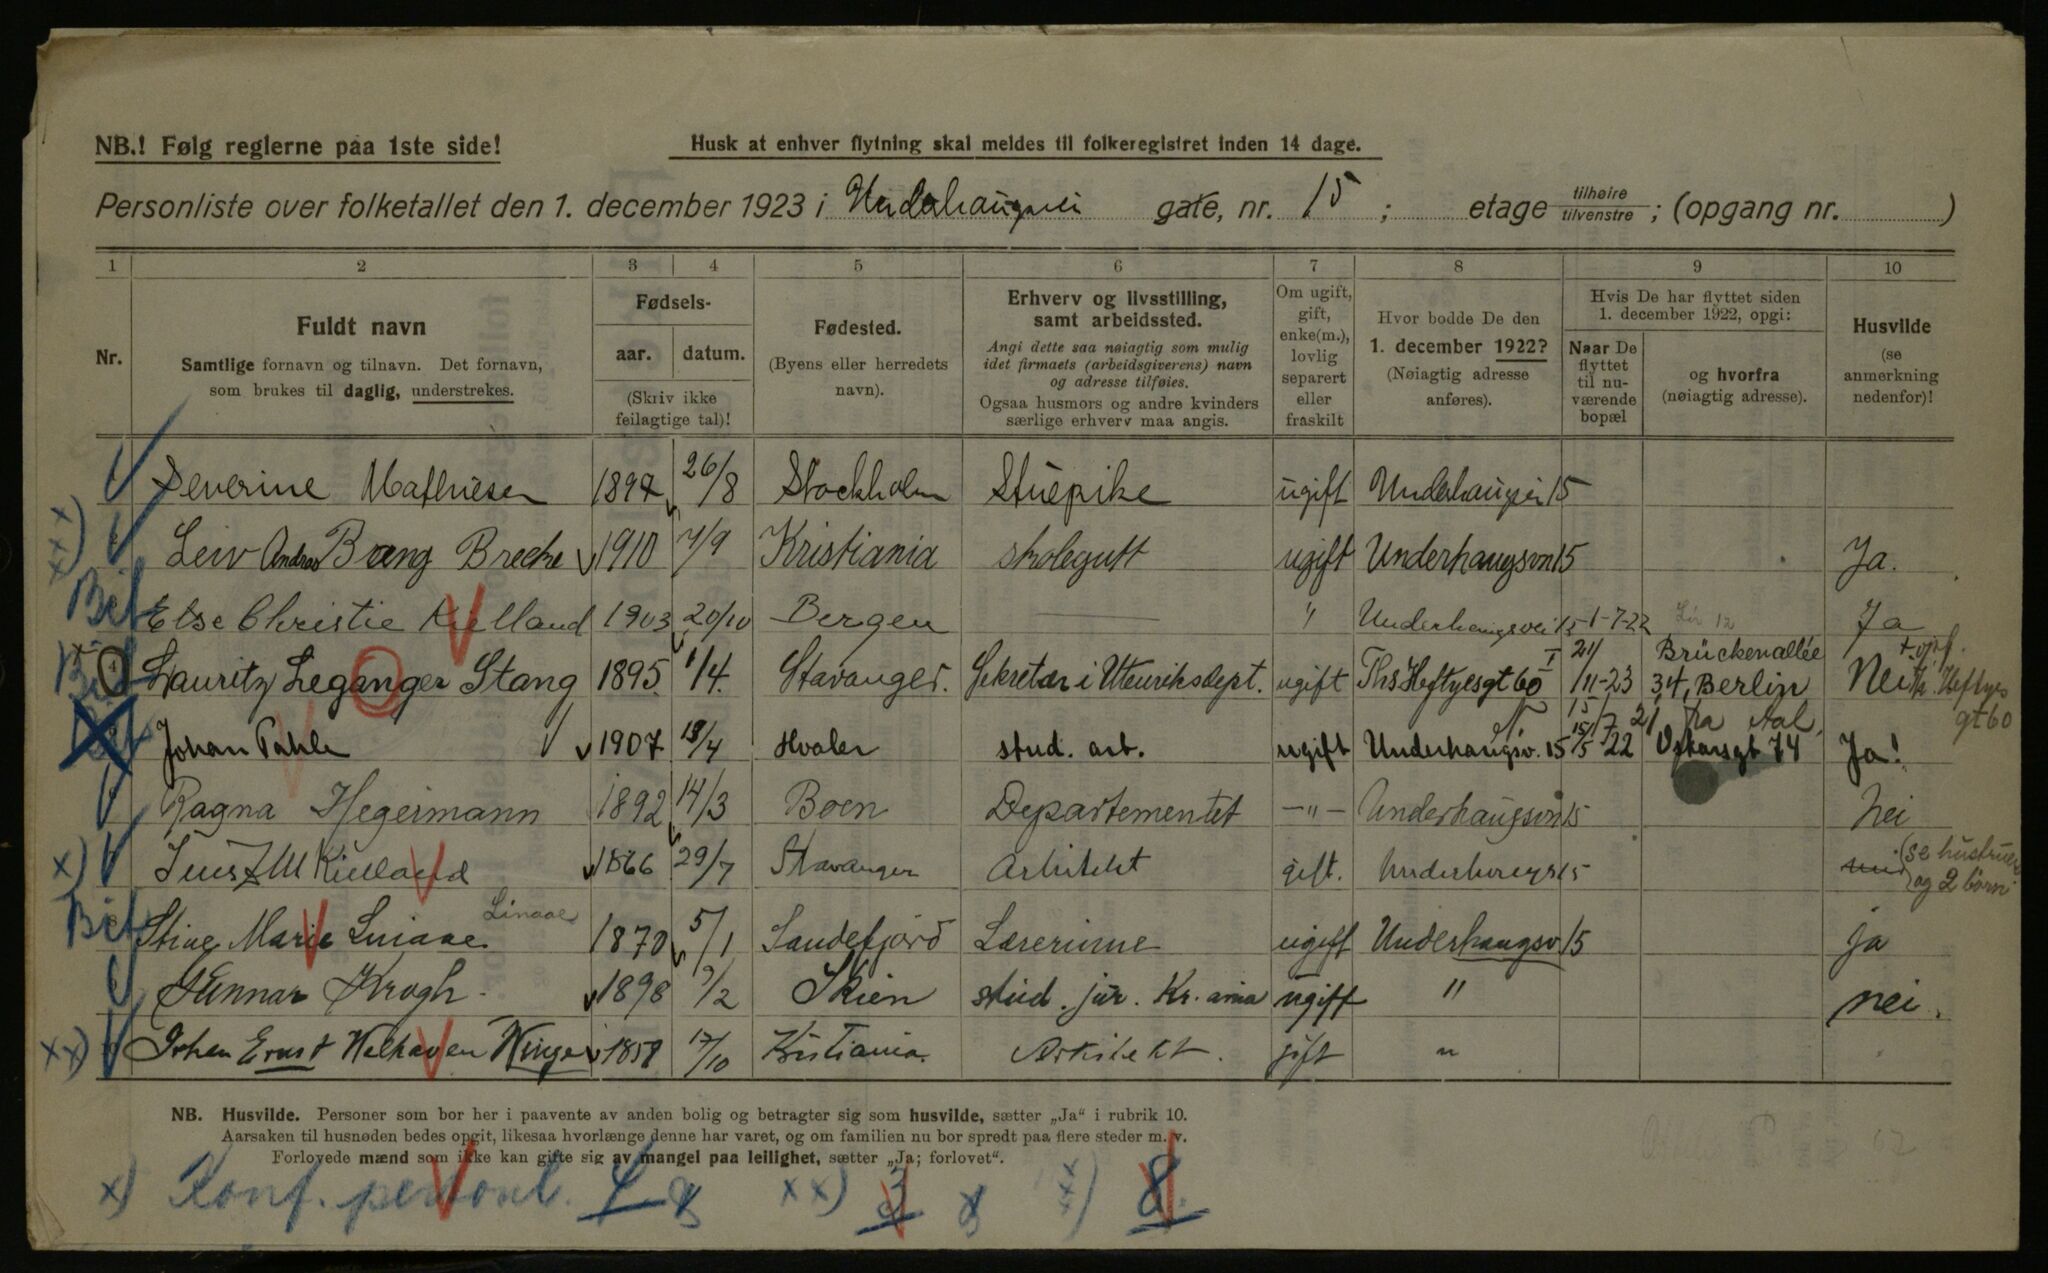 NB.! Følg reglerne paa 1ste side!
Husk at enhver flytning skal meldes til folkeregistret inden 14 dage.
Personliste over folketallet den 1. december 1923 i Underhaugsvei gate, nr. 15 ; etage tilhøire tilvenstre ; (opgang nr. )
1 2 3 4 5 6 7 8 9 10
Nr.
Fuldt navn
Samtlige fornavn og tilnavn. Det fornavn,
som brukes til daglig, understrekes.
Fødsels-
aar. datum.
(Skriv ikke
feilagtige tal)!
Fødested.
(Byens eller herredets
navn).
Erhverv og livsstilling,
samt arbeidssted.
Angi dette saa nøiagtig som mulig
idet firmaets (arbeidsgiverens) navn
og adresse tilføies.
Ogsaa husmors og andre kvinders
særlige erhverv maa angis.
Om ugift,
gift,
enke(m.),
lovlig
separert
eller
fraskilt
Hvor bodde De den
1. december 1922?
(Nøiagtig adresse
anføres).
Hvis De har flyttet siden
1. december 1922, opgi:
Naar De
flyttet
til nu-
værende
bopæl
og hvorfra
(nøiagtig adresse).
Husvilde
(se
anmerkning
nedenfor)!
Severine Mathiesen 1894 26/8 Stockholm Stuepike ugift Underhaugsvei 15
xxx) Leiv Andreas Brang Brecke 1910 7/9 Kristiania skolegutt ugift Underhaugsvn 15 Ja.
Bif Else Christie Kielland 1903 20/10 Bergen — " Underhaugsvei 15 1-7-22 Ja
4 Lauritz Leganger Stang 1895 1/4 Stavanger. Sekretær i Utenriksdept. ugift Ths Heftyesgt 60 I 21/11-23 Brückenallée 34, Berlin Nei Th. Heftyes gt 60
Johan Pahle 1907 18/4 Hvaler stud. art. ugift Underhaugsv. 15 15/5 22 Oskarsgt 74 fra Aal Ja!
Ragna Hegermann 1892 14/3 Boen Departementet —"— Underhaugsvn 15 Nei
x) Jens Z M Kielland 1866 29/7 Stavanger Arkitekt gift. Underhaugs 15 (se hustruen og 2 børn
Bif Stine Marie Linaae Linaae 1870 5/1 Sandefjord Lærerinne ugift Underhaugsv 15 ja
Gunnar Krogh. 1898 7/2 Skien stud. jur. Kr.ania ugift " nei.
xx) Johan Ernst Welhaven Krüge 1851 17/10 Kristiania. Arkitekt. gift "
NB. Husvilde. Personer som bor her i paavente av anden bolig og betragter sig som husvilde, sætter „Ja“ i rubrik 10.
Aarsaken til husnøden bedes opgit, likesaa hvorlænge denne har varet, og om familien nu bor spredt paa flere steder m. v.
Forlovede mænd som ikke kan gifte sig av mangel paa leilighet, sætter „Ja; forlovet“.
x) Konf. personl. xx) 3 xxx) 8.